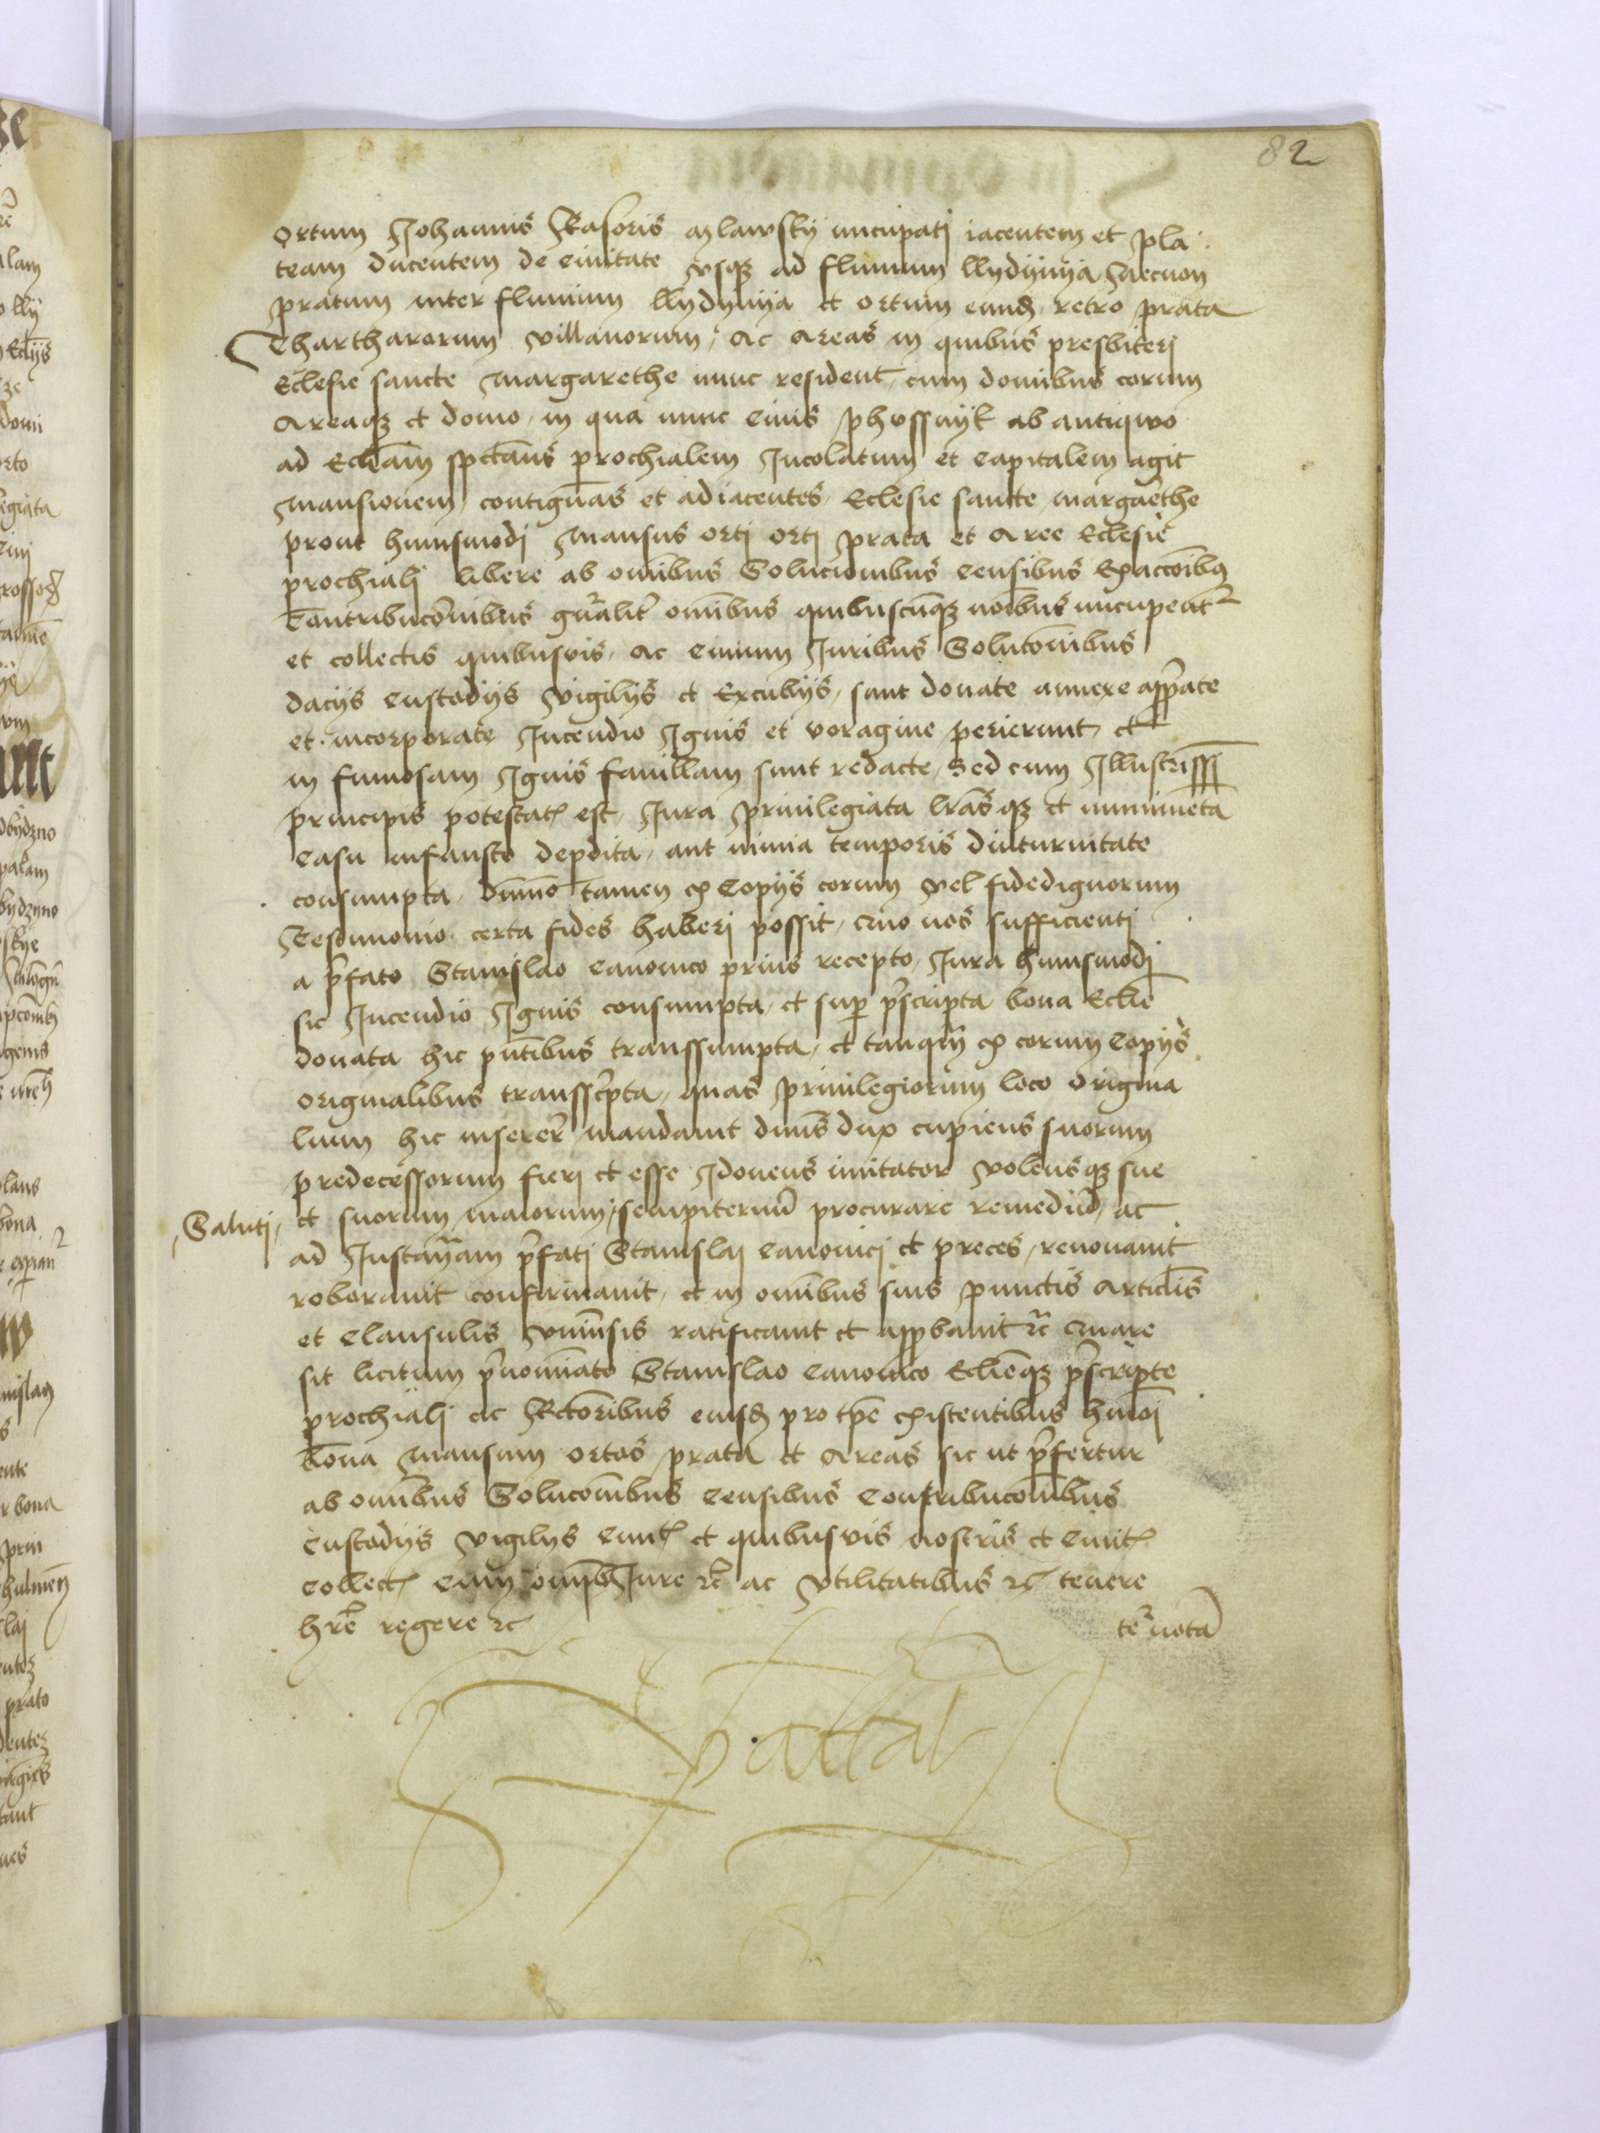 82
ortum Johannis Rasoris mlawsky nucupati iacentem et pla
team ducentem de ciuitate vsqz ad fluuium llydynya Necnon
pratum inter fluuium llydynya et ortum eiusd retro prata
Thartharorum villanorum, Ac Areas in quibus presbiteri
Eclesie sancte Margarethe nunc resident, cum domibus eorum
Areaqz et domo, in qua nunc Ciuis ab antiqwo
ad Eccliam spctans prochialem Incolatum et capitalem agit
Mansionem, contiguas et adiacentes, Eclesie sancte margarethe
prout huiusmodi Mansus orti orti prata et Aree Eclesie
prochiali libere ab omibus Solucionibus Censibus Exaccoibus
Contribucoibus gnralitr omibus quibuscuqz noibus nucupeantr
et collectis quibusvis, ac Ciuium Juribus Solutionibus
dacijs custodijs vigilijs et Excubijs, sunt donate annexe apropate
et incorporate Incendio Ignis et voragine perierunt, et
in fumosam Ignis fauillam sunt redacte, Sed cum Illustrissimi
principis potestatis est, Jura priuilegiata lrasqz et munimeta
Casu infausto depdita, aut nimia temporis diuturnitate
consumpta, dummo tamen ex Copijs eorum vel fidedignorum
Testimonio certa fides haberi possit, quo nos sufficienti
a pfato Stanislao Canonico prius recepto, Jura huiusmodi
sic Incendio Ignis consumpta, et sup pscripta bona Ecclie
donata hic pntibus transsumpta, et tanqm ex eorum Copijs
originalibus transscripta, quas priuilegiorum loco origina
lium hic inserere mandauit dnus dux cupiens suorum
predecessorum fieri et esse Idoneus imitator volensqz sue
Saluti
et suorum maiorum, sempiternu procurare remediu, ac
ad Instanciam pfati Stanislai Canonici et preces, renouauit
roborauit confirmauit, et in omibus suis punctis Articlis
et Clausulis vniuersis ratificauit et approbauit rc Quare
sit licitum pnominato Stanislao Canonico Ecclieqz pscripte
prochiali ac Rctoribus eiusd pro tpe existentibus hmoi
bona Mansum ortos prata et Areas sic ut pfertur
ab omibus Solucoibus Censibus Contribucoibus
custodijs vigilijs Ciuit et quibusvis nostris et Ciuit
collect Cum omi Jure rc ac vtilitatibus rc tenere
hre regere rc